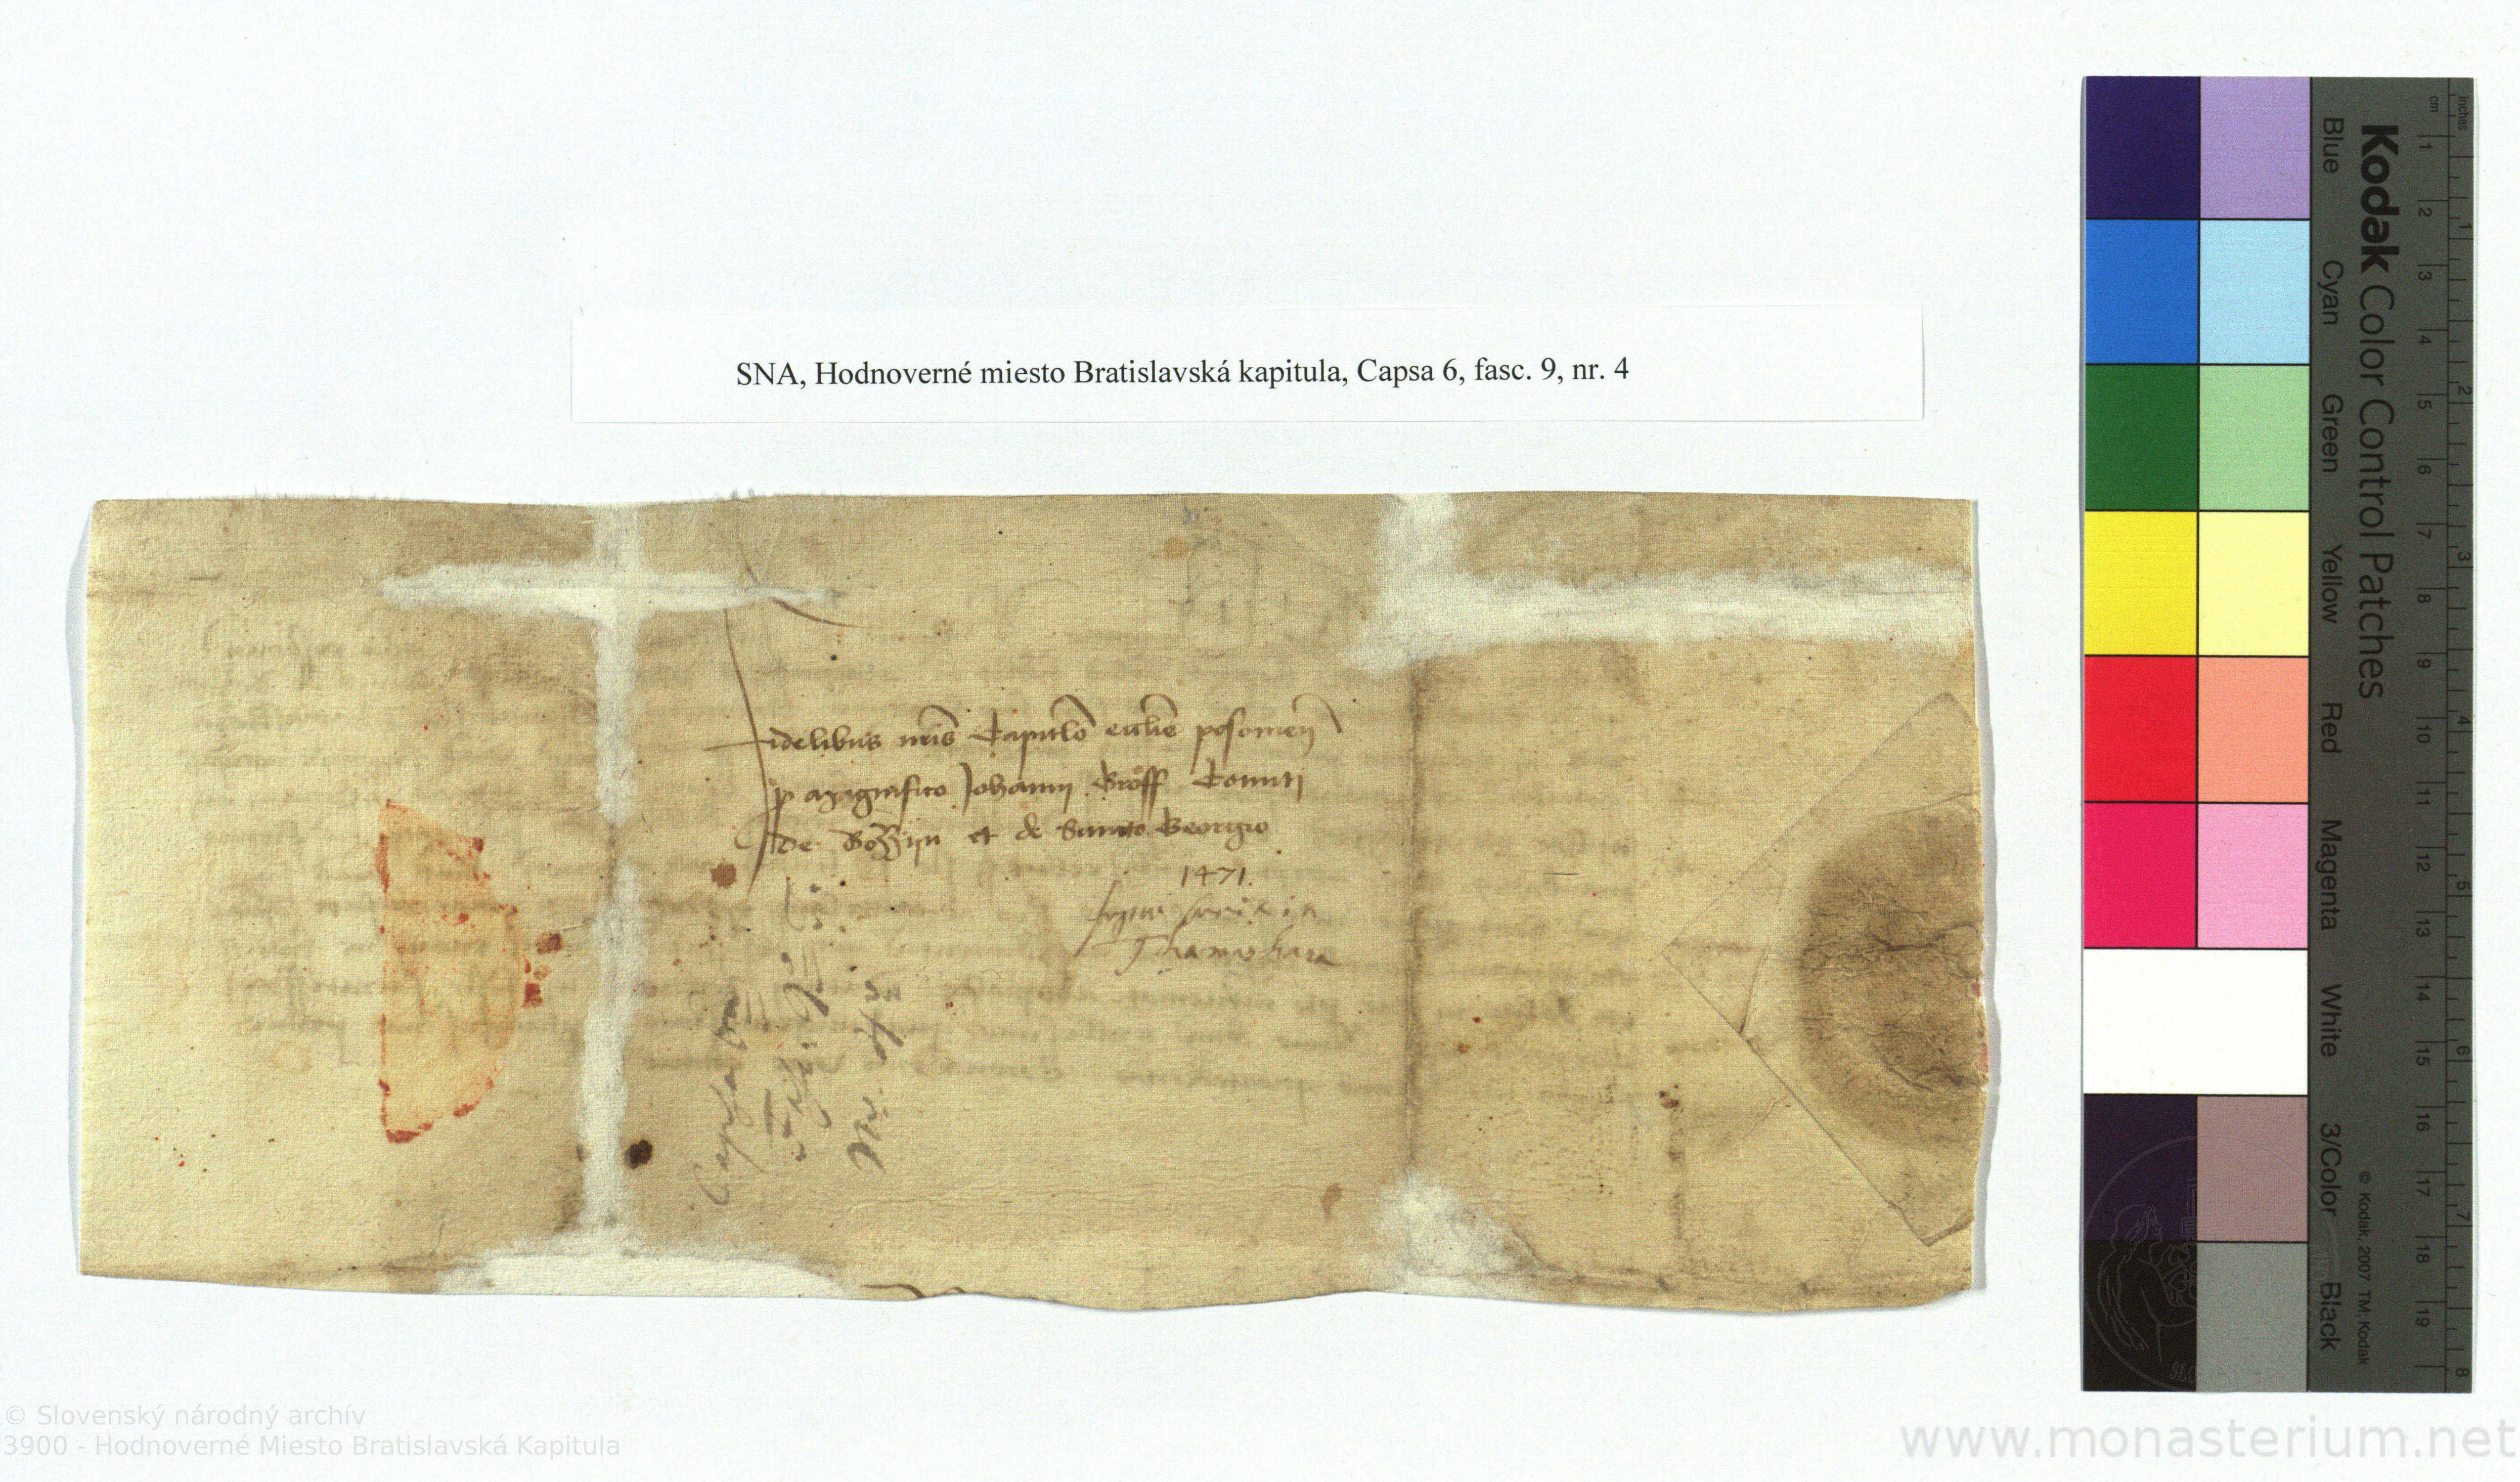 SNA, Hodnoverné miesto Bratislavská kapitula, Capsa 6, fasc. 9, nr. 4
Fidelibus nris Capitlo ecclie posonien
p magnifico Johanni Groff Comiti
de Bozyn et de Sancto Georgio
1471.
Capsa
Fasc: 9
Nr. 4
Kodak Color Control Patches
Blue Cyan Green Yellow Red Magenta White 3/Color Black
© Kodak, 2007 TM: Kodak
inches 1 2 3 4 5 6 7 8
cm 1 2 3 4 5 6 7 8 9 10 11 12 13 14 15 16 17 18 19
© Slovenský národný archív
3900 - Hodnoverné Miesto Bratislavská Kapitula
www.monasterium.net